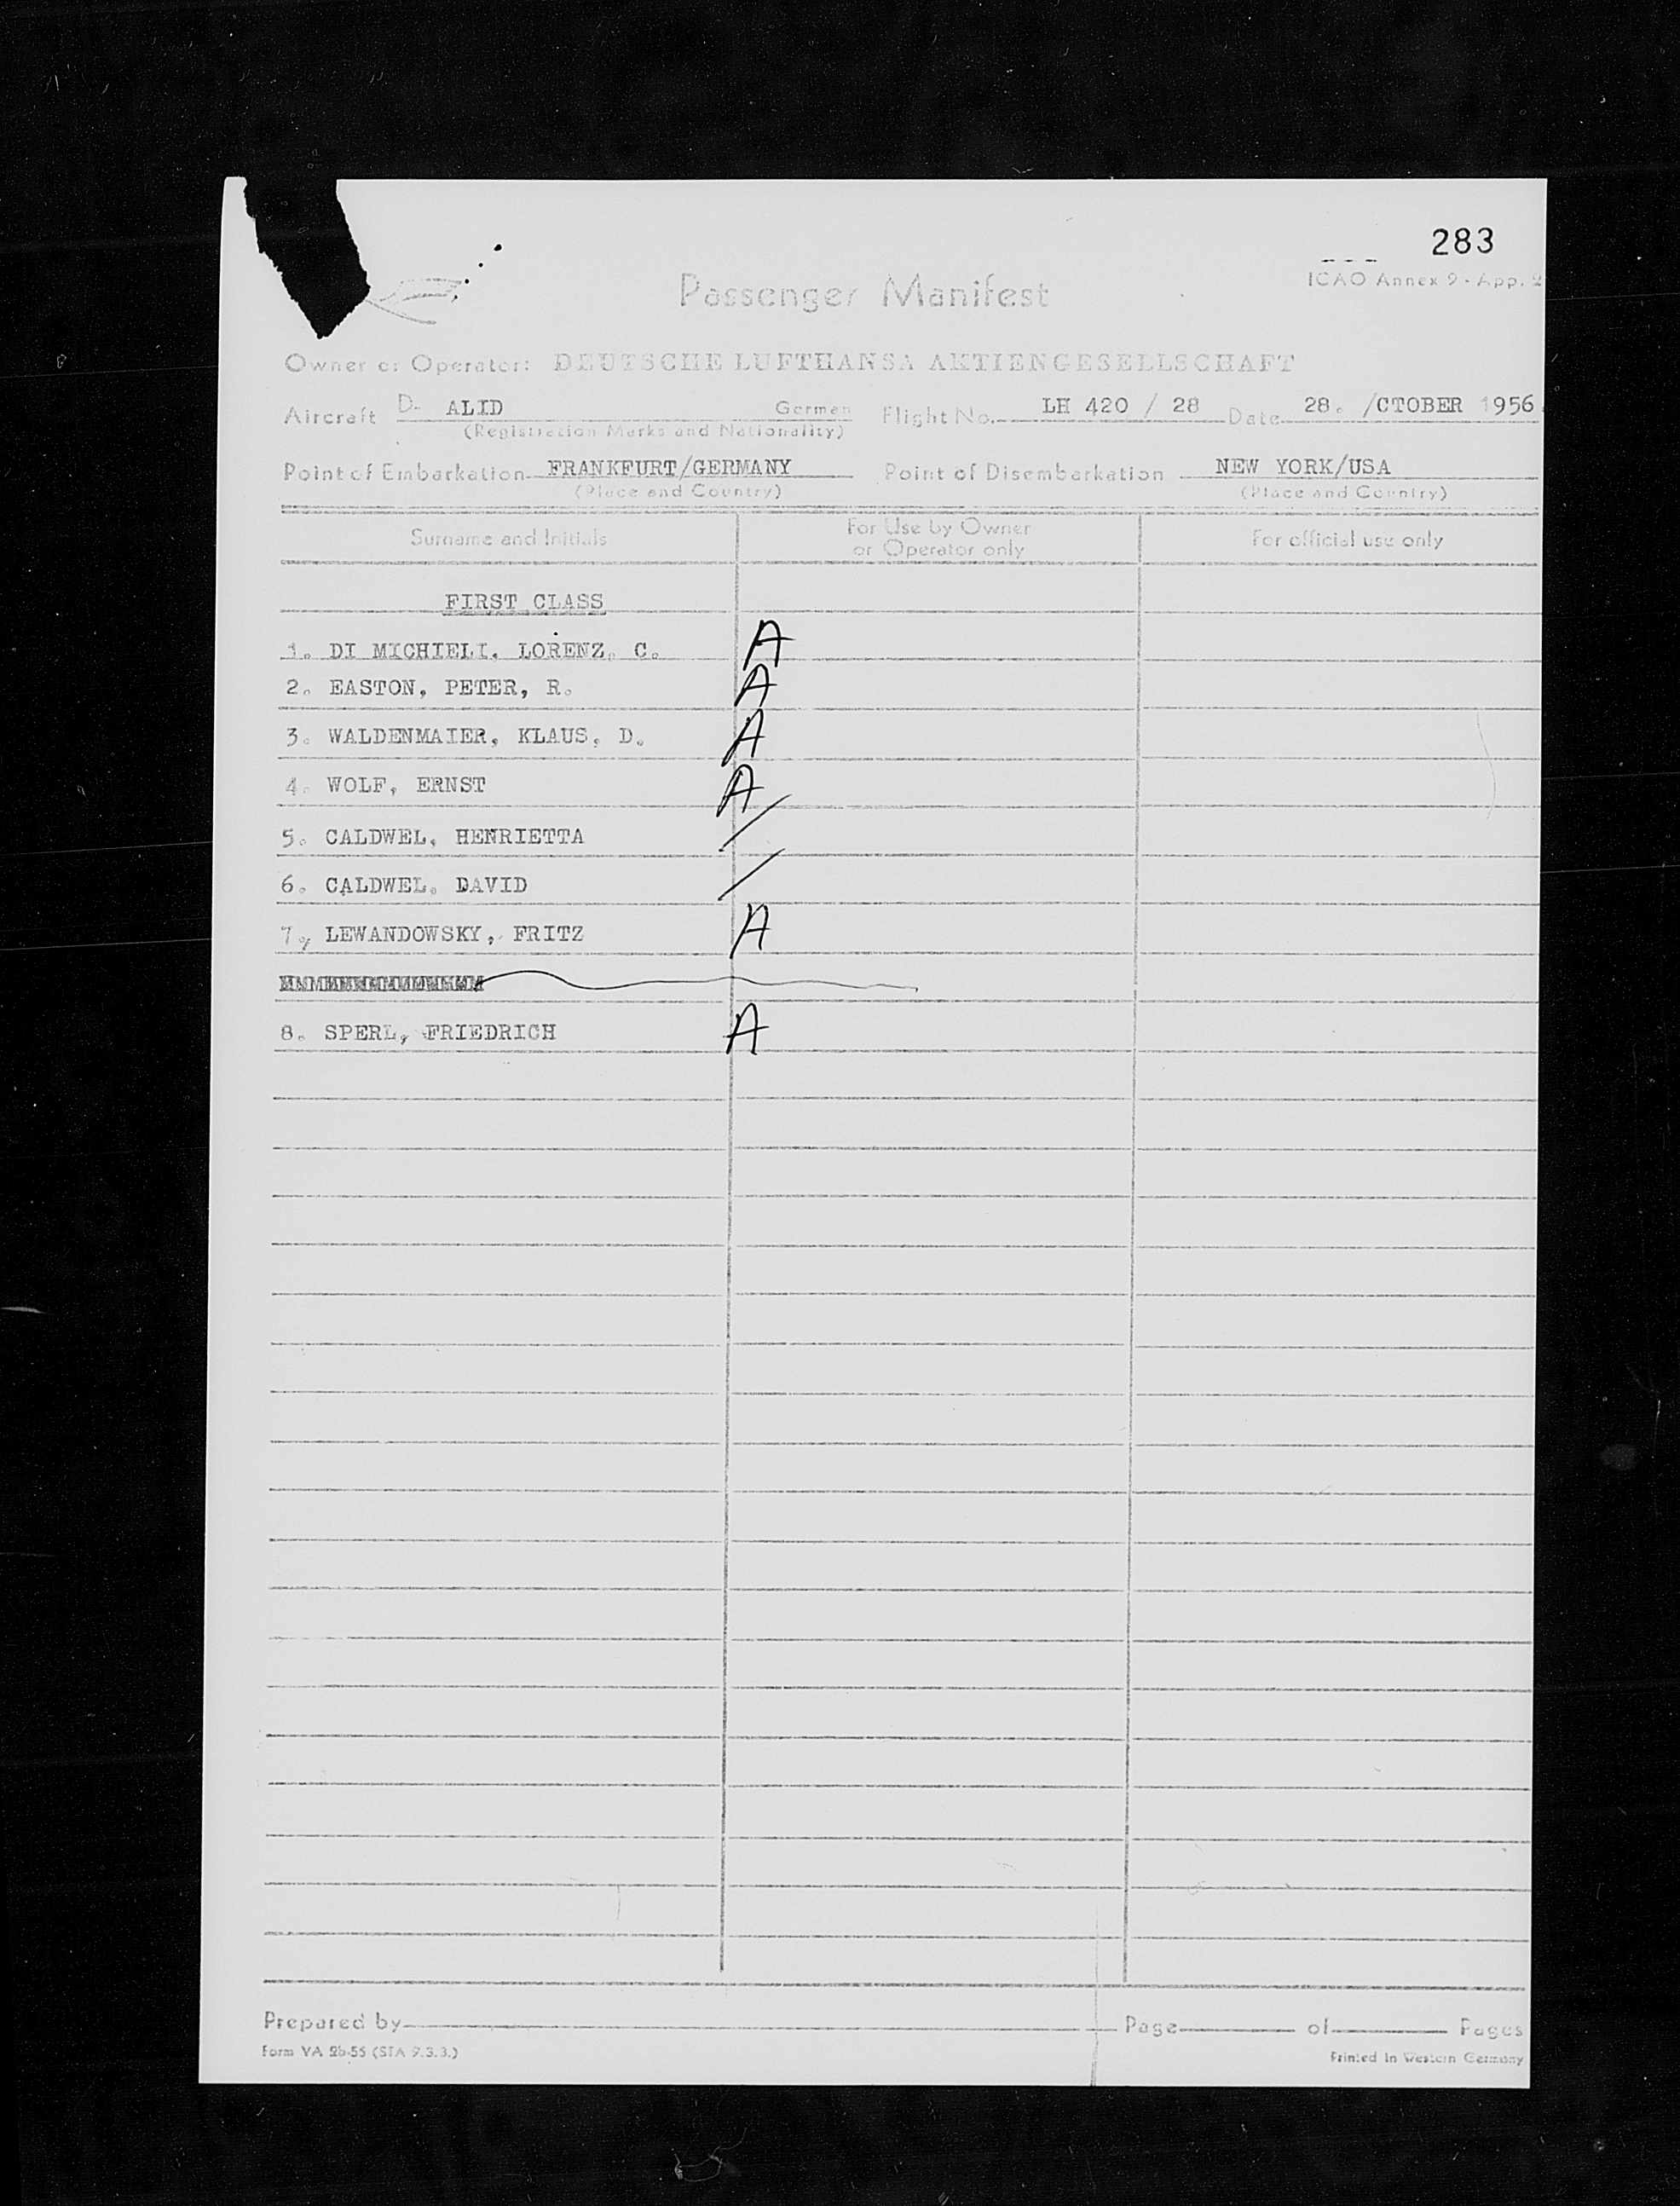 283
ICAO Annex 9 - App. 2
Passenger Manifest
Owner or Operator: DEUTSCHE LUFTHANSA AKTIENGESELLSCHAFT
Aircraft D- ALID German Flight No. LH 420 / 28 Date 28. /CTOBER 1956
(Registration Marks and Nationality)
Point of Embarkation FRANKFURT/GERMANY Point of Disembarkation NEW YORK/USA
(Place and Country) (Place and Country)
Surname and Initials For Use by Owner or Operator only For official use only
FIRST CLASS
1. DI MICHIELI, LORENZ, C. A
2. EASTON, PETER, R. A
3. WALDENMAIER, KLAUS, D. A
4. WOLF, ERNST A
5. CALDWEL, HENRIETTA /
6. CALDWEL, DAVID /
7, LEWANDOWSKY, FRITZ A
8. SPERL, FRIEDRICH A
Prepared by Page of Pages
Form VA 2b-55 (STA 9.3.3.) Printed in Western Germany